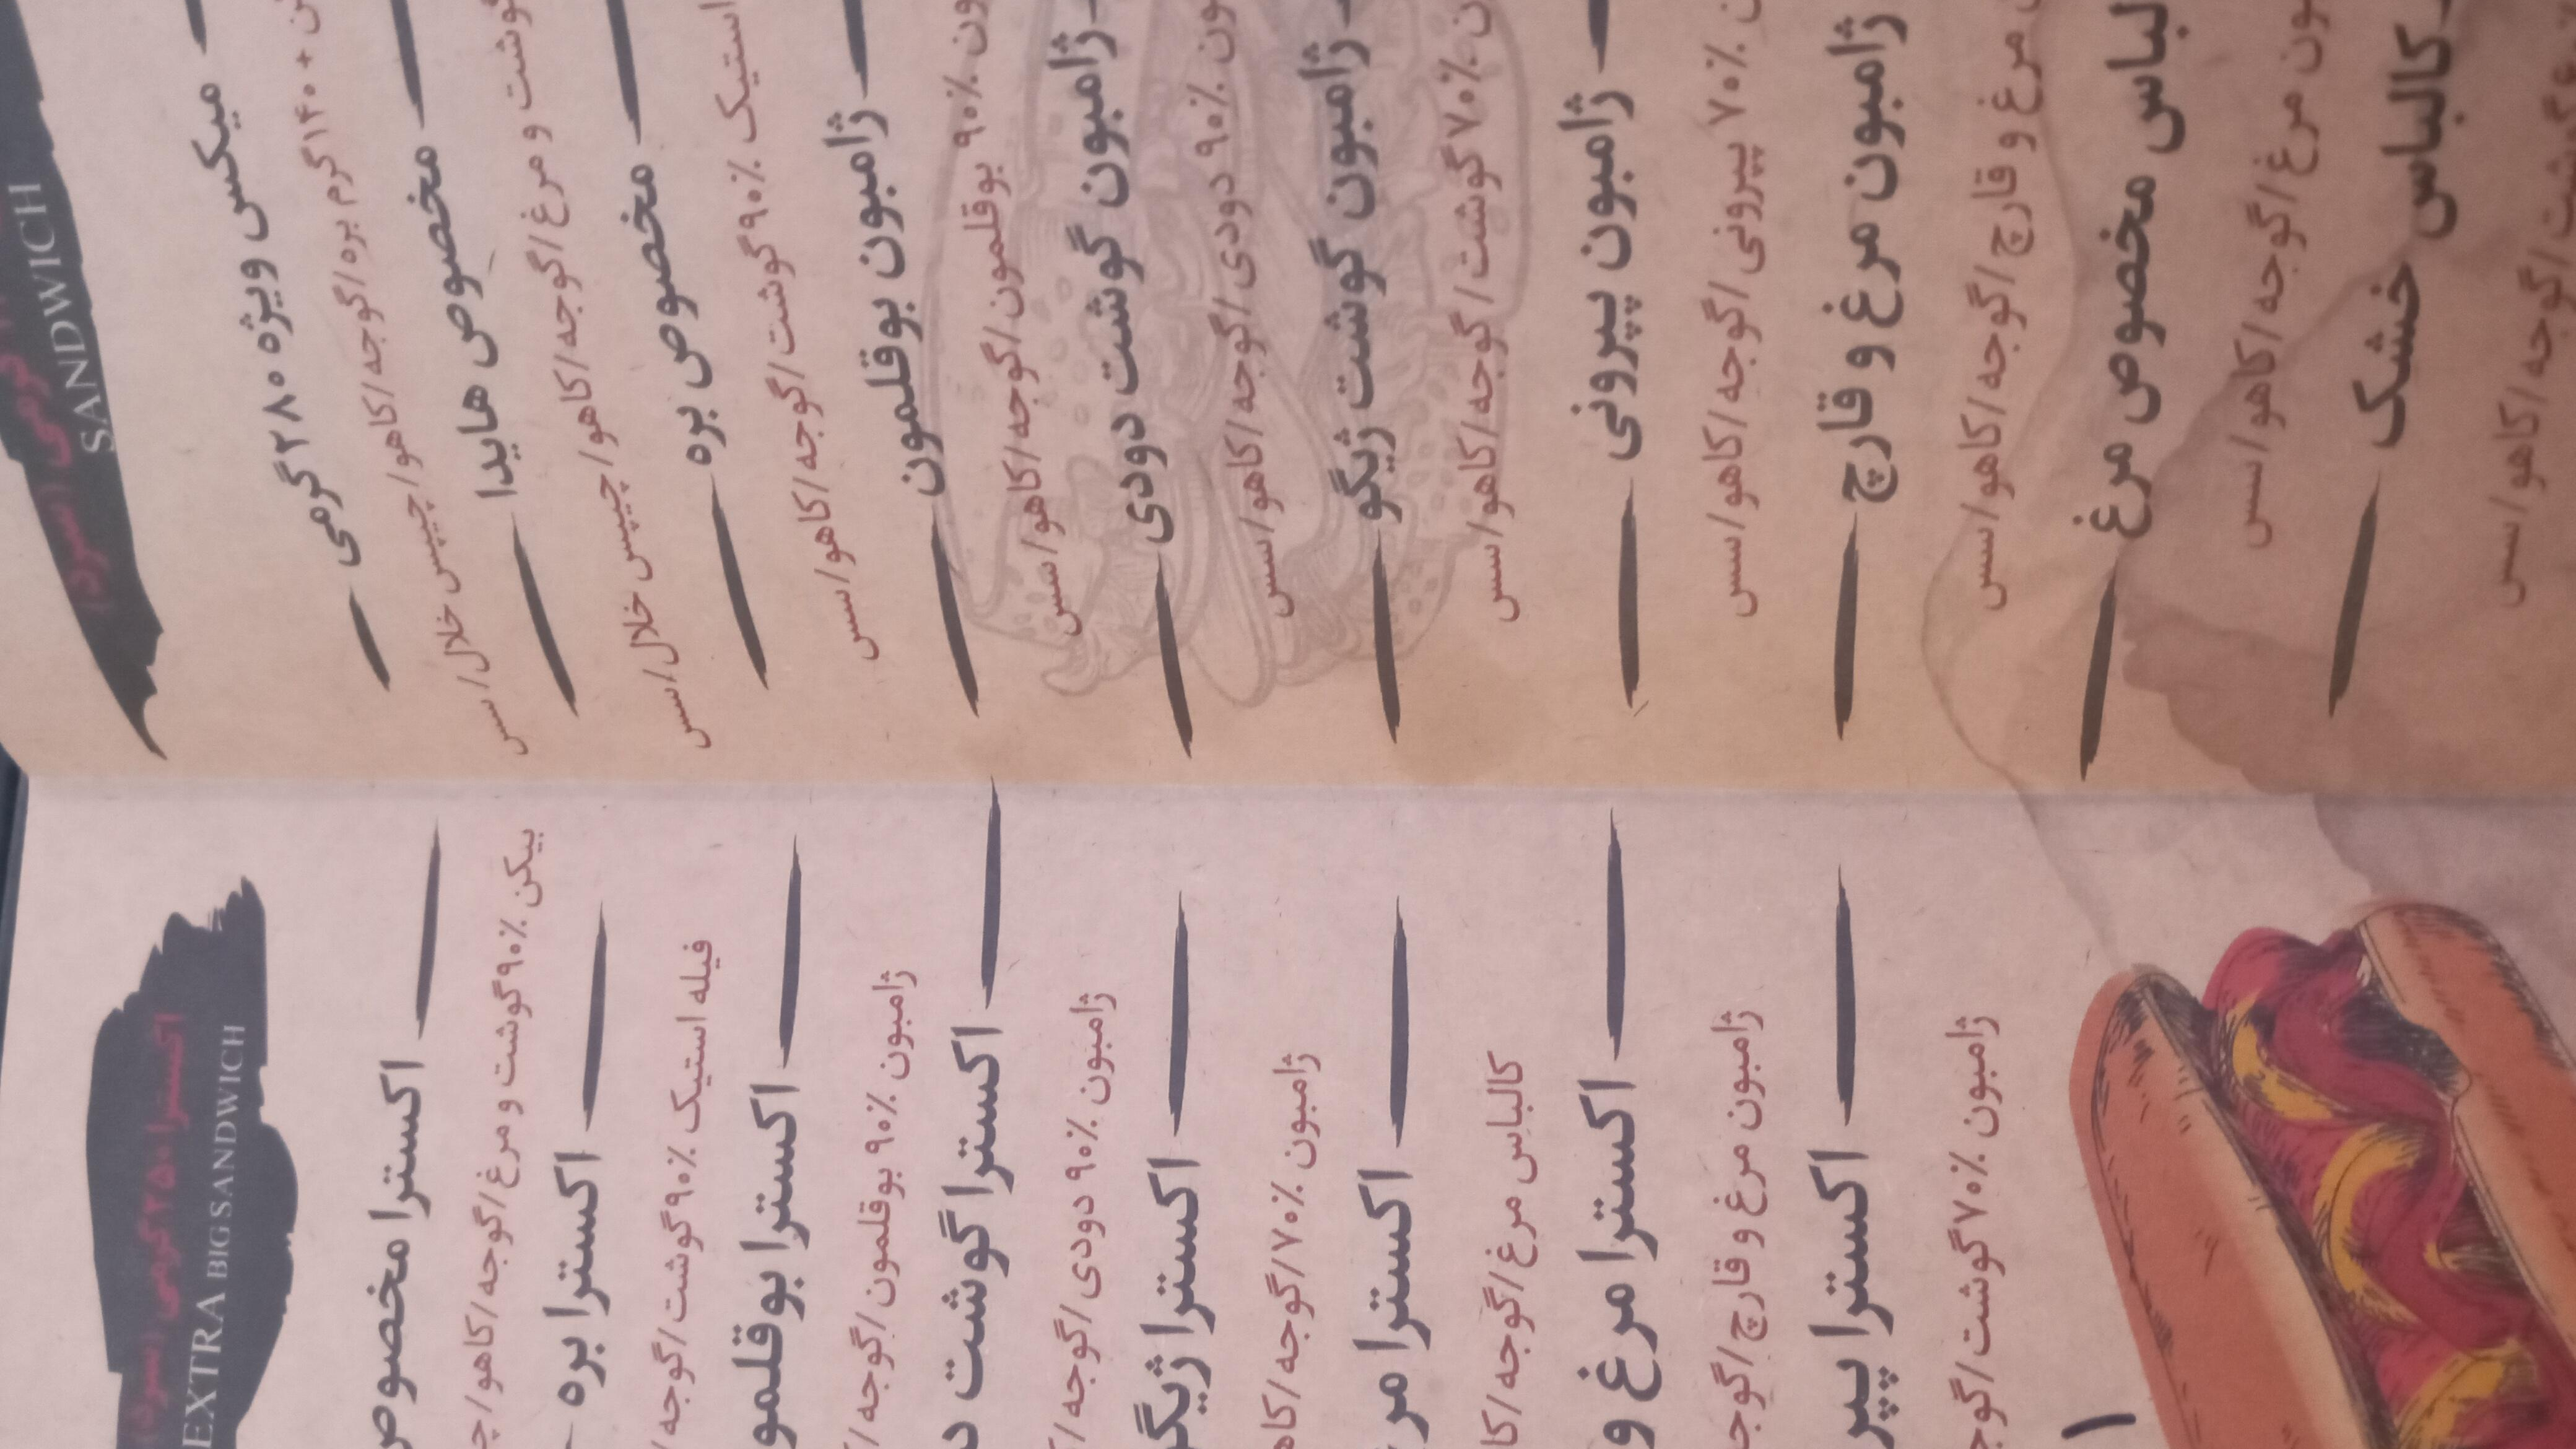 SANDWICH
میکس ویژه ۲۸۰ گرمی
+ ۱۴۰ گرم بره/گوجه/کاهو/چیپس خلال/سس
مخصوص هایدا
گوشت و مرغ/گوجه/کاهو/چیپس خلال/سس
مخصوص بره
استیک ۹۰٪ گوشت/گوجه/کاهو/سس
ژامبون بوقلمون
۹۰٪ بوقلمون/گوجه/کاهو/سس
ژامبون گوشت دودی
۹۰٪ دودی/گوجه/کاهو/سس
ژامبون گوشت ژیگو
۷۰٪ گوشت/گوجه/کاهو/سس
ژامبون پپرونی
۷۰٪ پپرونی/گوجه/کاهو/سس
ژامبون مرغ و قارچ
مرغ و قارچ/گوجه/کاهو/سس
مخصوص مرغ
مرغ/گوجه/کاهو/سس
کالباس خشک
گوجه/کاهو/سس
اکسترا ۲۵۰ گرمی (سرد)
EXTRA BIG SANDWICH
اکسترا مخصوص
بیکن ۹۰٪ گوشت و مرغ/گوجه/کاهو/چ
اکسترا بره
فیله استیک ۹۰٪ گوشت/گوجه/
اکسترا بوقلمو
ژامبون ۹۰٪ بوقلمون/گوجه/
اکسترا گوشت د
ژامبون ۹۰٪ دودی/گوجه/
اکسترا ژیگ
ژامبون ۷۰٪/گوجه/کاه
اکسترا مر
کالباس مرغ/گوجه/کا
اکسترا مرغ و
ژامبون مرغ و قارچ/گوج
اکسترا پپر
ژامبون ۷۰٪ گوشت/گوج